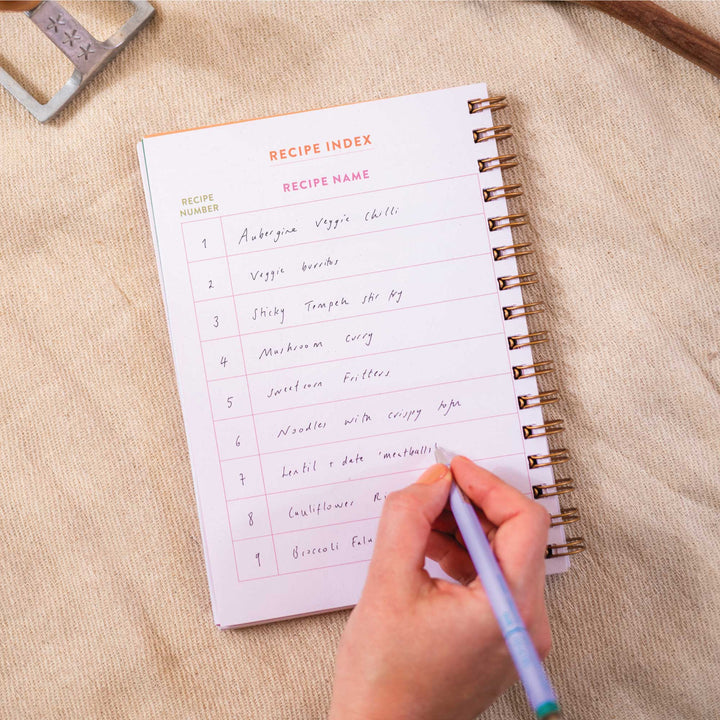 RECIPE INDEX
RECIPE NUMBER RECIPE NAME
1 Aubergine Veggie Chilli
2 Veggie burritos
3 Sticky Tempeh stir fry
4 Mushroom Curry
5 Sweetcorn Fritters
6 Noodles with crispy tofu
7 Lentil + date 'meatballs'
8 Cauliflower
9 Broccoli